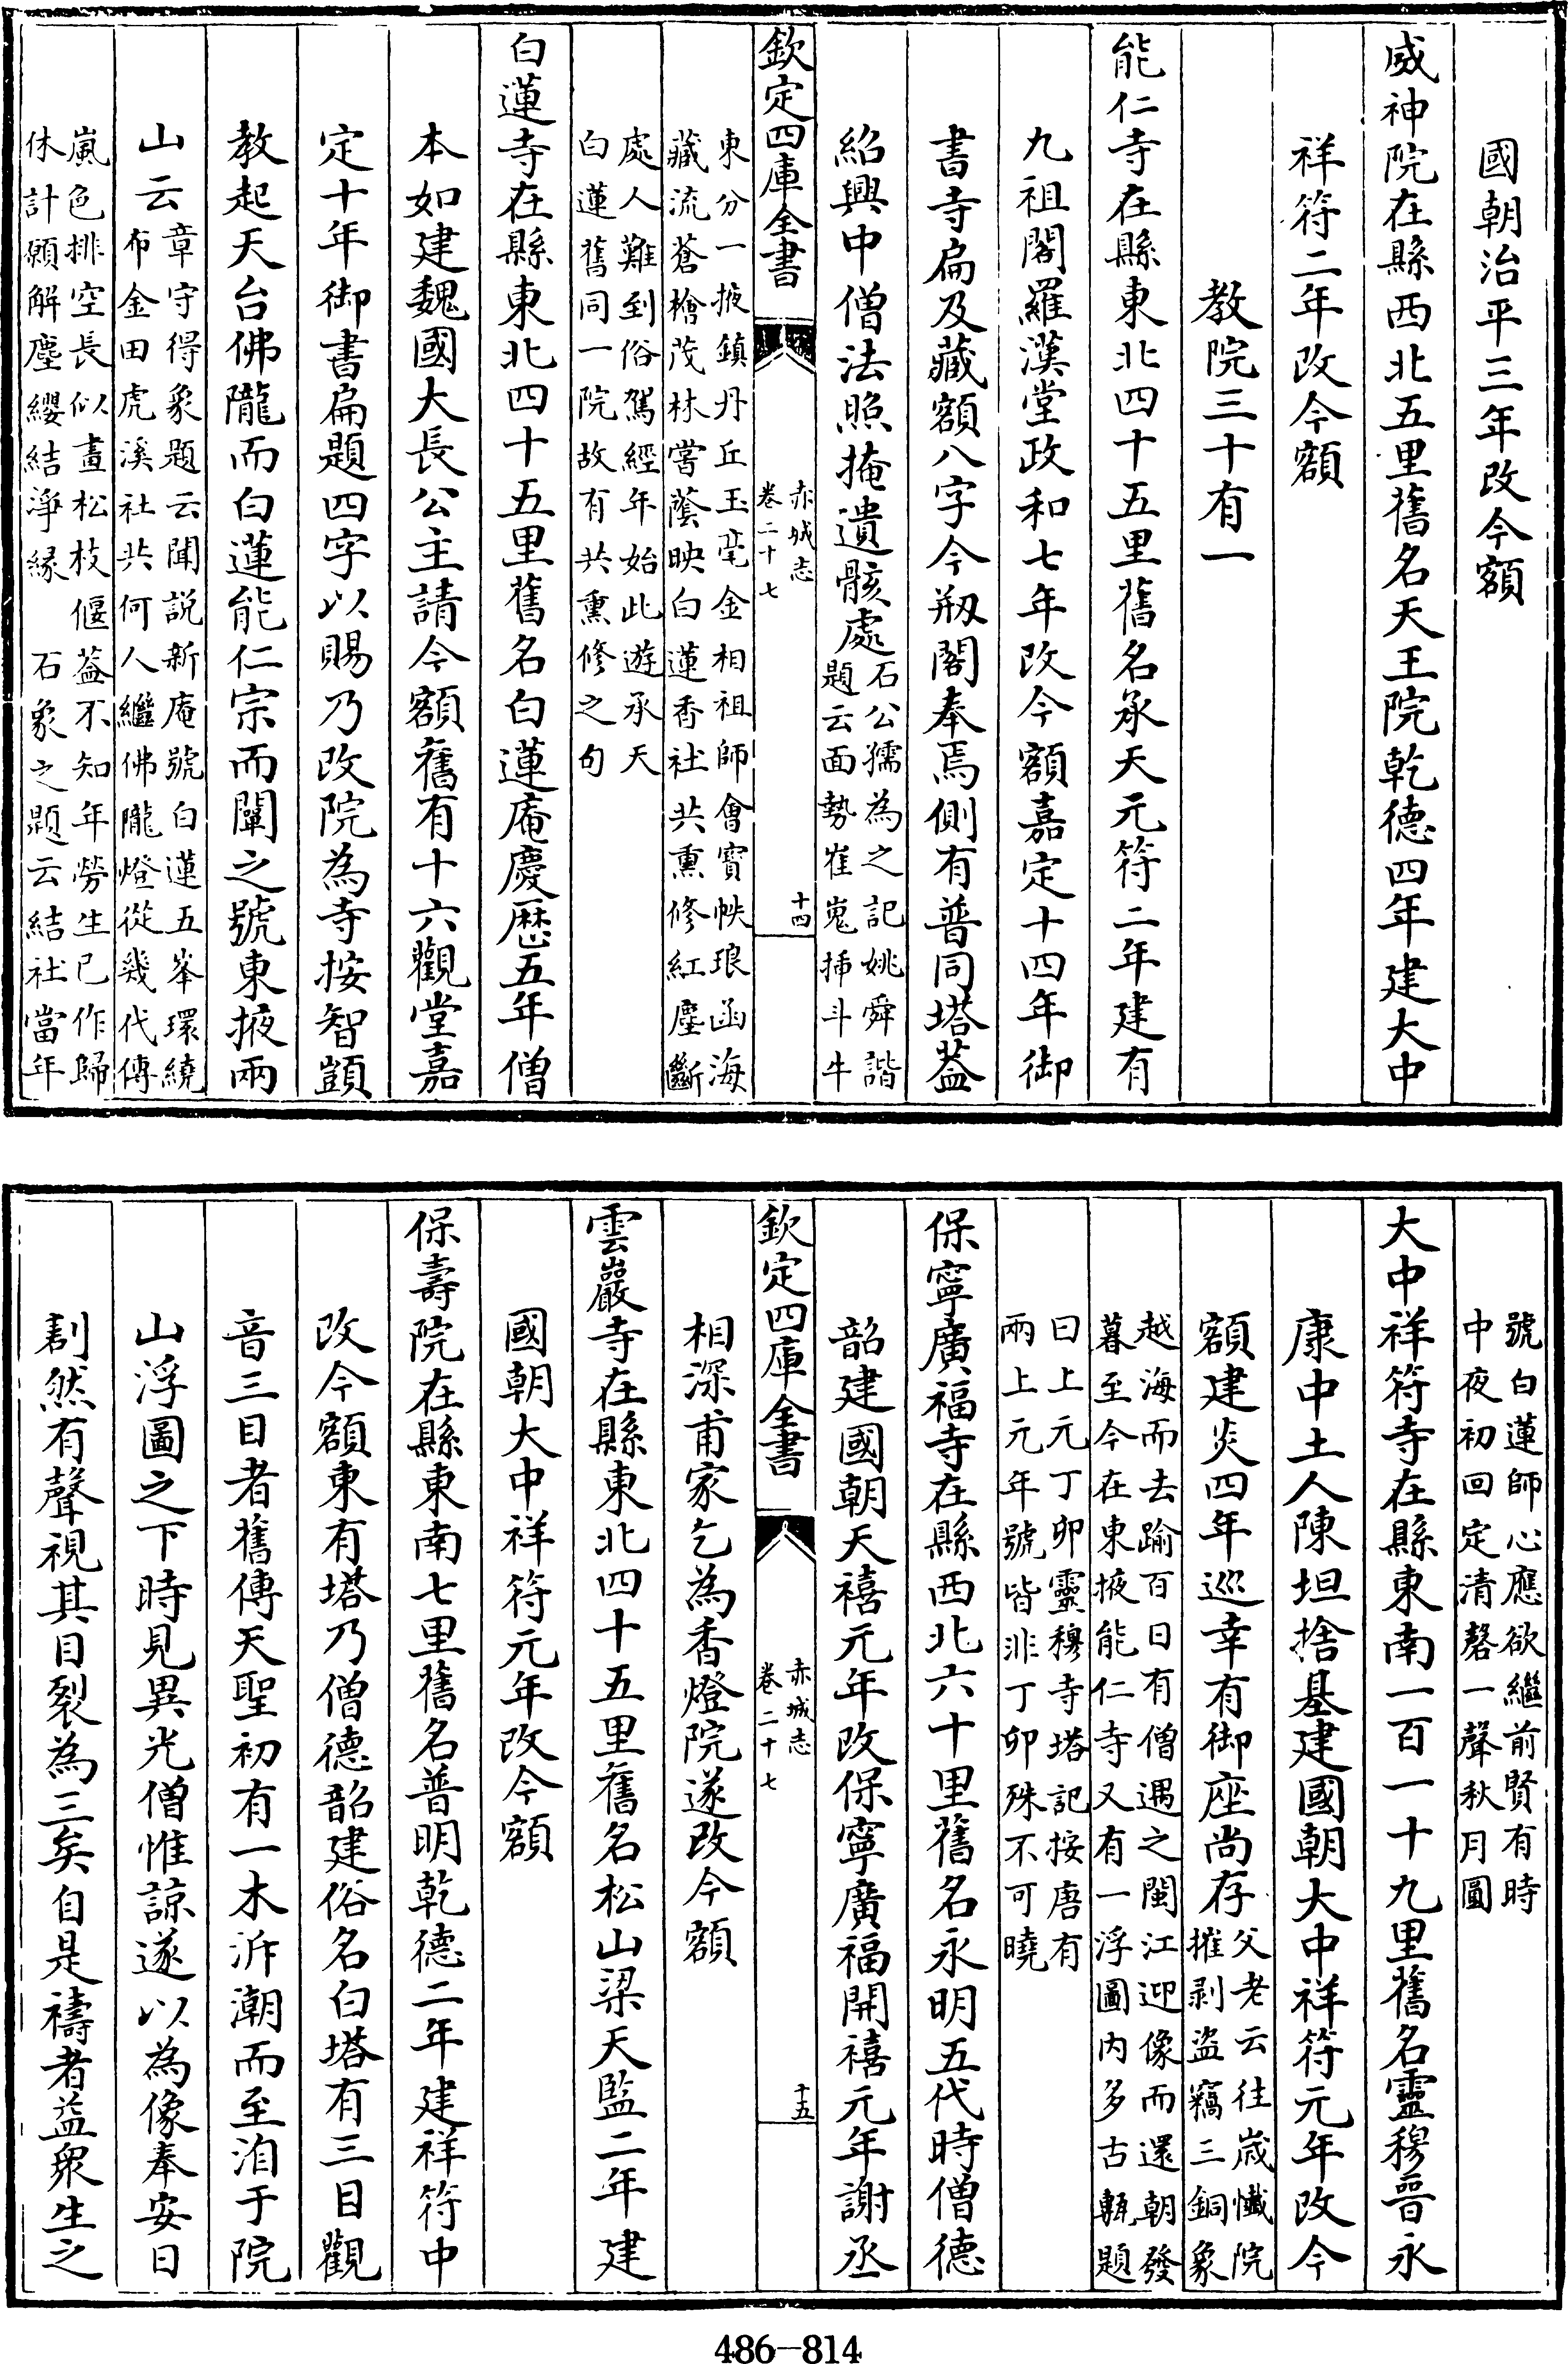 國朝治平三年改今額
威神院在縣西北五里舊名天王院乾德四年建大中
祥符二年改今額
教院三十有一
能仁寺在縣東北四十五里舊名承天元符二年建有
九祖閣羅漢堂政和七年改今額嘉定十四年御
書寺扁及藏額八字今剏閣奉焉側有普同塔葢
紹興中僧法照掩遺骸處
石公孺為之記姚舜諧
題云面勢崔嵬揷斗牛
欽定四庫全書
赤城志
卷二十七
十四
東分一掖鎮丹丘玉毫金相祖師會寶帙琅函海
藏流蒼檜茂林嘗蔭映白蓮香社共熏修紅塵斷
處人難到俗駕經年始此遊承天
白蓮舊同一院故有共熏修之句
白蓮寺在縣東北四十五里舊名白蓮庵慶歴五年僧
本如建魏國大長公主請今額舊有十六觀堂嘉
定十年御書扁題四字以賜乃改院為寺按智顗
教起天台佛隴而白蓮能仁宗而闡之號東掖兩
山云
章守得象題云聞説新庵號白蓮五峯環繞
布金田虎溪社共何人繼佛隴燈從幾代傳
嵐色排空長似畫松枝偃葢不知年勞生已作歸
休計願解塵纓結淨緣　石象之題云結社當年
號白蓮師心應欲繼前賢有時
中夜初回定清磬一聲秋月圓
大中祥符寺在縣東南一百一十九里舊名靈穆晉永
康中土人陳坦捨基建國朝大中祥符元年改今
額建炎四年巡幸有御座尚存
父老云往歳懺院
摧剥盜竊三銅象
越海而去踰百日有僧遇之閩江迎像而還朝發
暮至今在東掖能仁寺又有一浮圖内多古甎題
曰上元丁卯靈穆寺塔記按唐有
兩上元年號皆非丁卯殊不可曉
保寧廣福寺在縣西北六十里舊名永明五代時僧德
韶建國朝天禧元年改保寧廣福開禧元年謝丞
欽定四庫全書
赤城志
卷二十七
十五
相深甫家乞為香燈院遂改今額
雲巖寺在縣東北四十五里舊名松山梁天監二年建
國朝大中祥符元年改今額
保壽院在縣東南七里舊名普明乾德二年建祥符中
改今額東有塔乃僧德韶建俗名白塔有三目觀
音三目者舊傳天聖初有一木泝潮而至洎于院
山浮圖之下時見異光僧惟諒遂以為像奉安日
割然有聲視其目裂為三矣自是禱者益衆生之
486-814